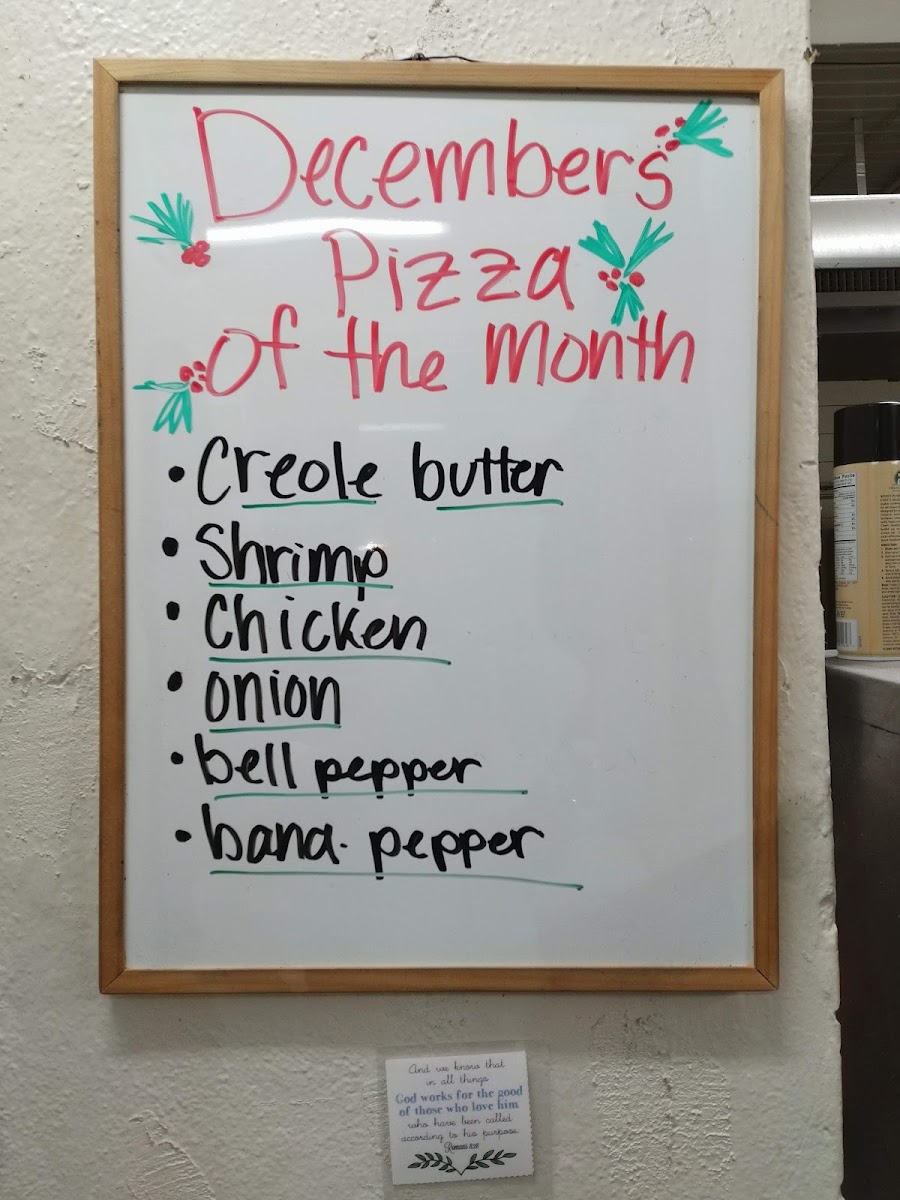 Decembers
Pizza
of the month
• Creole butter
• Shrimp
• Chicken
• onion
• bell pepper
• bana. pepper
And we know that
in all things
God works for the good
of those who love him
who have been called
according to his purpose.
Romans 8:28